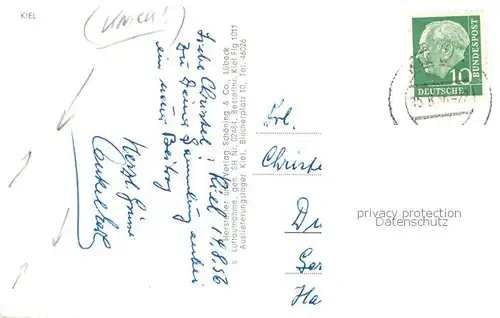 KIEL
(UNICH!)
Kiel 14.8.56
Liebe Christel!
Zu Deiner Sammlung anbei
ein neuer Beitrag
Herzl. Grüsse
Hersteller und Verlag Schöning & Co., Lübeck
Luftaufnahme, gen. Str. Nr. 02484, Bestellnr. Kiel Flg 1011
Auslieferungslager Kiel, Blücherplatz 10, Tel. 46026
10
DEUTSCHE
BUNDESPOST
Frl.
Christe
Du
Ger
Ha
privacy protection
Datenschutz